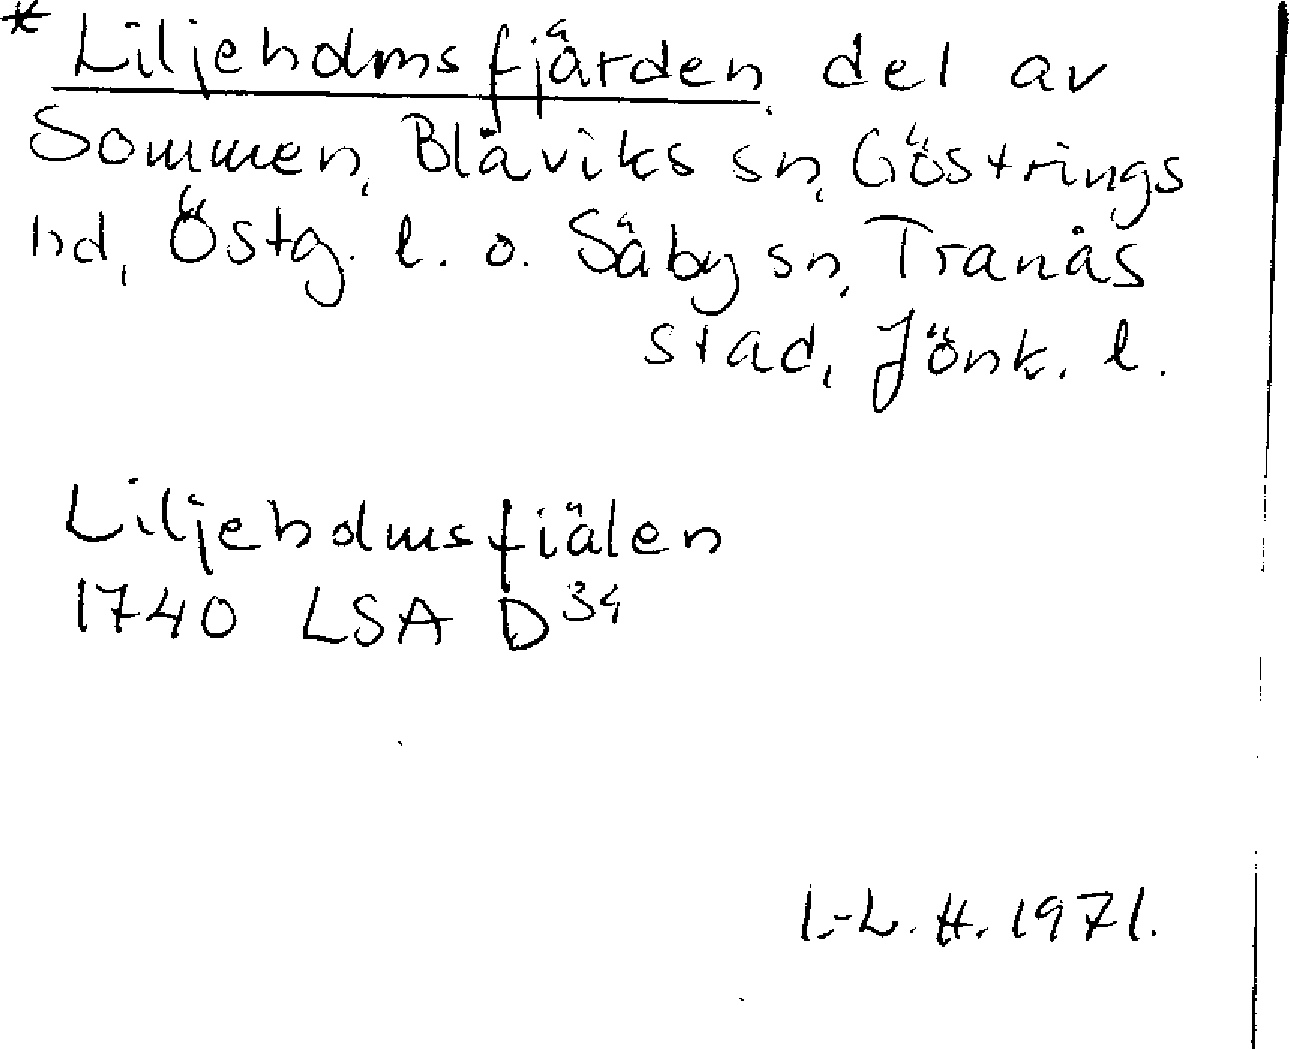 * Liljeholmsfjärden, del av
Sommen, Blåviks sn, Göstrings
hd, Östg. l. o. Säby sn, Tranås
stad, Jönk. l.
Liljeholmsfiälen
1740 LSA D34
L-L. H. 1971.